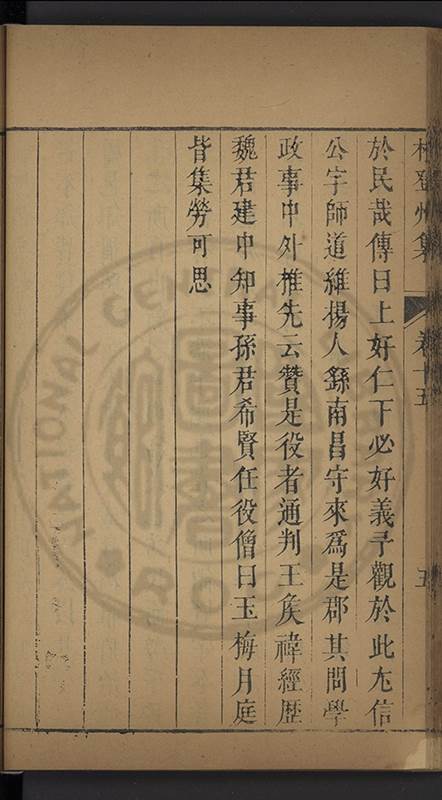 林登州集 卷十五 五
於民哉傳曰上好仁下必好義予觀於此尤信
公字師道維揚人繇南昌守來爲是郡其問學
政事中外推先云贊是役者通判王侯禕經歷
魏君建中知事孫君希賢任役僧曰玉梅月庭
皆集勞可思